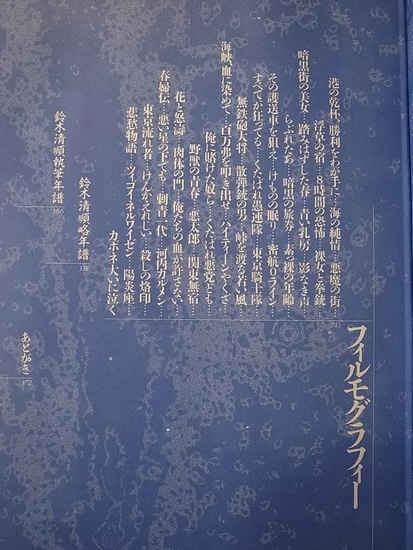 フィルモグラフィー
港の乾杯、勝利をわが手に…海の純情…悪魔の街…
浮草の宿…8時間の恐怖…裸女と拳銃…
暗黒街の美女…踏みはずした春…青い乳房…影なき声…
らぶれたあ…暗黒の旅券…素っ裸の年齢…
その護送車を狙え…けものの眠り…密航0ライン…
すべてが狂ってる…くたばれ愚連隊…東京騎士隊…
無鉄砲大将…散弾銃の男…峠を渡る若い風…
海峡、血に染めて…百万弗を叩き出せ…ハイティーンやくざ…
俺に賭けた奴ら…くたばれ悪党ども…
野獣の青春…悪太郎…関東無宿…
花と怒濤…肉体の門…俺たちの血が許さない…
春婦伝…悪い星の下でも…刺青一代…河内カルメン…
東京流れ者…けんかえれじい…殺しの烙印…
悲愁物語…ツィゴイネルワイゼン…陽炎座…
カポネ大いに泣く
鈴木清順略年譜
鈴木清順執筆年譜
あとがき 372